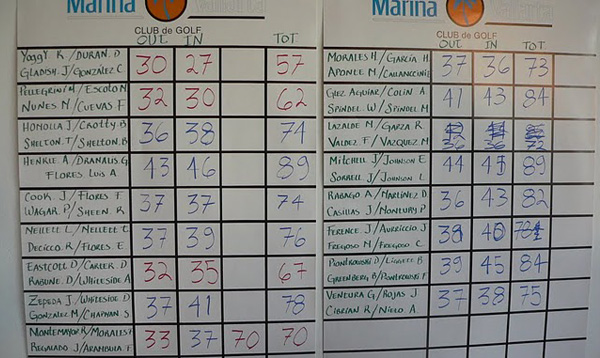 Marina
CLUB de GOLF
OUT IN TOT
Yoggy. R / DURAN. D
GLADISH. J / GONZÁLEZ C. 30 27 57
PELLEGRINI M / ESCOTO M
NUNES M / CUEVAS F 32 30 62
HONOLLA J / CROTTY. B
SHELTON. T / SHELTON. B 36 38 74
HENRLE. A / DRANAUS G
FLORES LUIS A 43 46 89
COOK. J / FLORES F
WAGAR P / SHEEN. R 37 37 74
NEILELL L / NEILELL C
DECICCO. R / FLORES E 37 39 76
EASTCOTT D / CARTER D
RABUNE. D / WHITESIDE A 32 35 67
ZEPEDA J / WHITESIDE D
GONZALEZ M / CHAPMAN S 37 41 78
MONTEMAYOR R / MORALES
REGALADO J / ARAMBULA F. 33 37 70 70
Marina
CLUB de GOLF
OUT IN TOT
MORALES H / GARCÍA H.
APONLE M / 37 36 73
GLEZ AGUIAR / COLIN A
SPINDEL W / SPINDEL M 41 43 84
LAZALDE M / GARZA R.
VALDEZ F / VAZQUEZ M 36 36 72
MITCHELL J / JOHNSON E
SORRELL J / JOHNSON L 44 45 89
RABAGO A / MARTINEZ D.
CASILLAS J / MONTURY P 36 43 82
FERENCE. J / AURICCIO J
FREGOSO M / FREGOSO C 38 40
PIONTKOWSKI D / LIDDELL B
GREENBERG B / PIONTKOWSKI P 39 45 84
VENTURA G / ROJAS J
CIBRIAN R / NIETO A. 37 38 75